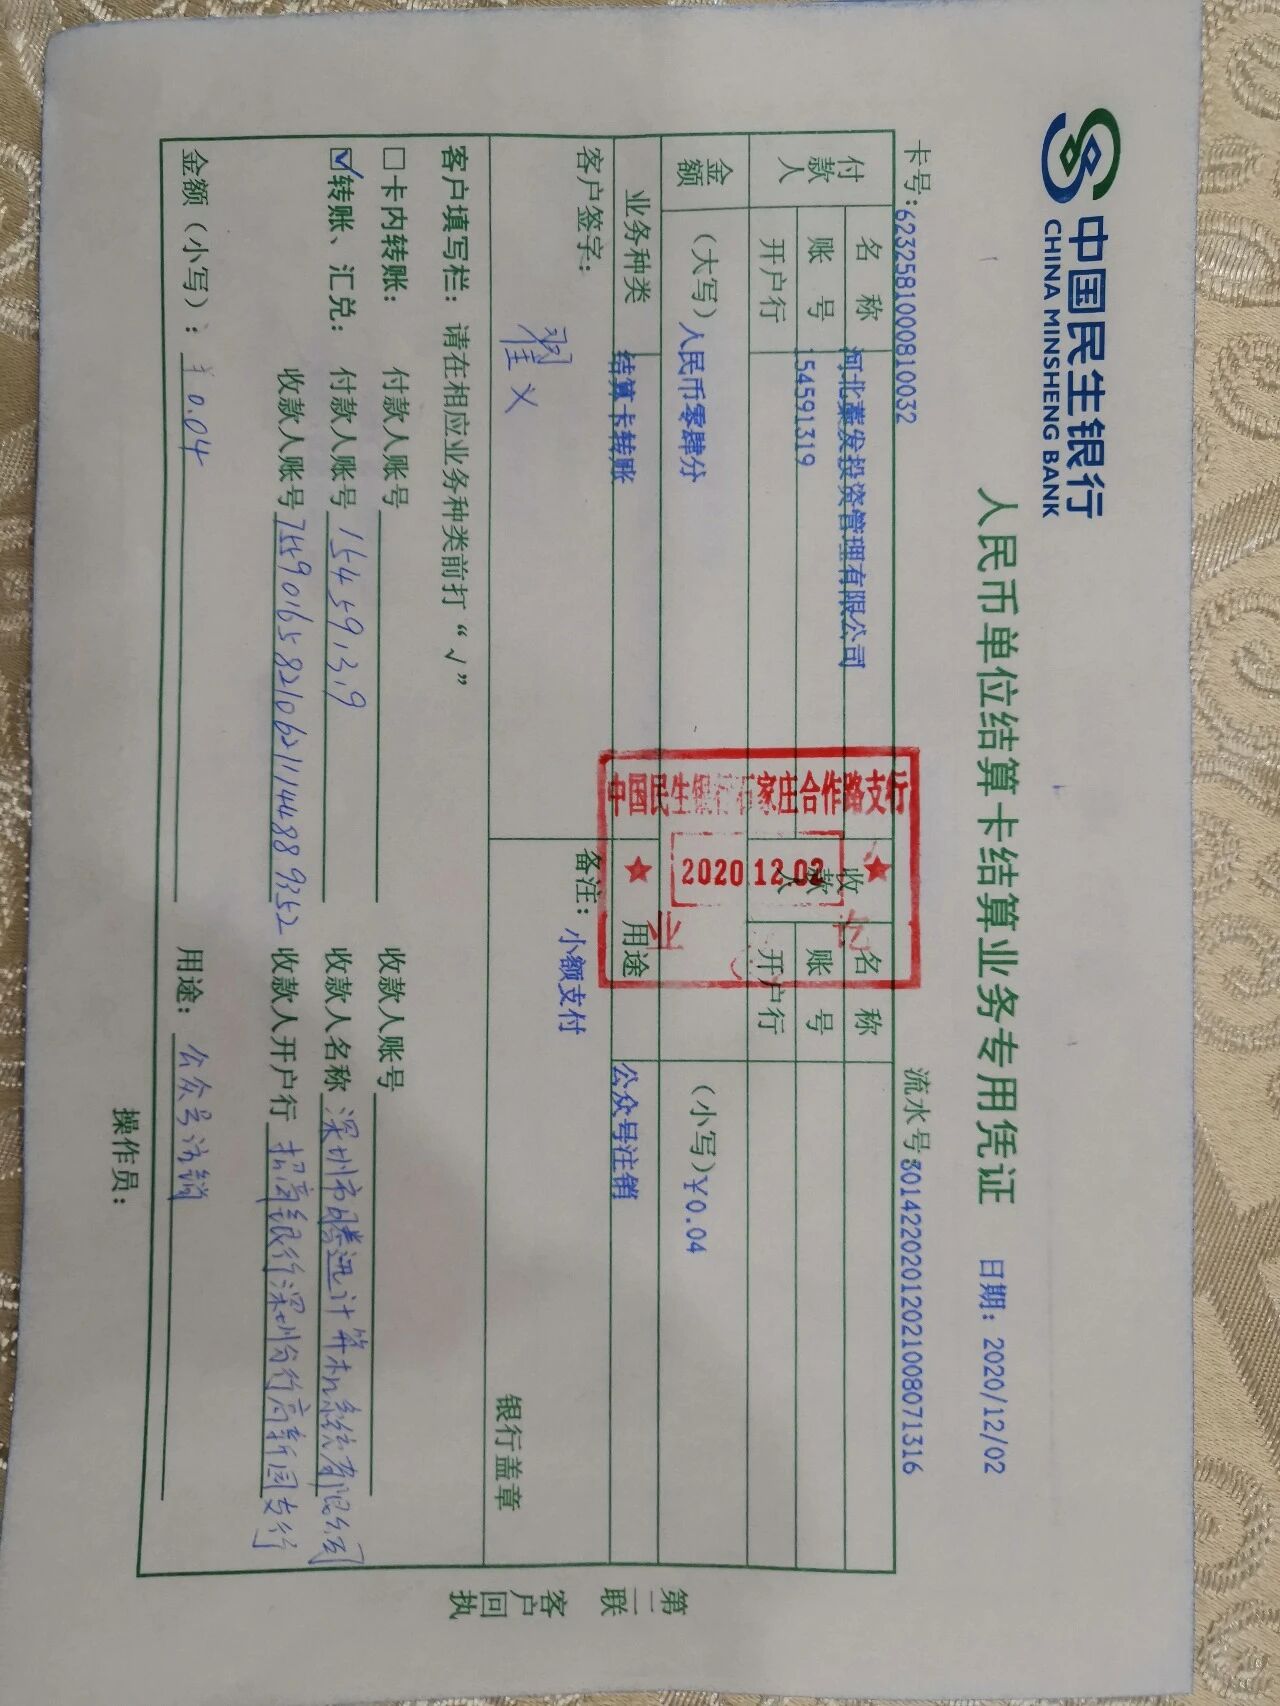 中国民生银行
CHINA MINSHENG BANK
人民币单位结算卡结算业务专用凭证 日期: 2020/12/02
卡号:6232581000810032 流水号:30142202012021008071316
付款人 名称 河北藁发投资管理有限公司 收款人 名称
账号 154591319 账号
开户行 开户行
金额 (大写)人民币零肆分 (小写)¥0.04
业务种类 结算卡转账 用途 公众号注销
客户签字: 翟义 备注: 小额支付
银行盖章
中国民生银行石家庄合作路支行
2020.12.02
客户填写栏: 请在相应业务种类前打“√”
□卡内转账: 付款人账号 收款人账号
☑转账、汇兑: 付款人账号 154591319 收款人名称 深圳市腾迅计算机系统有限公司
收款人账号 755901658210621114889352 收款人开户行 招商银行深圳分行高新园支行
金额(小写): ¥0.04 用途: 公众号注销
操作员:
第二联 客户回执